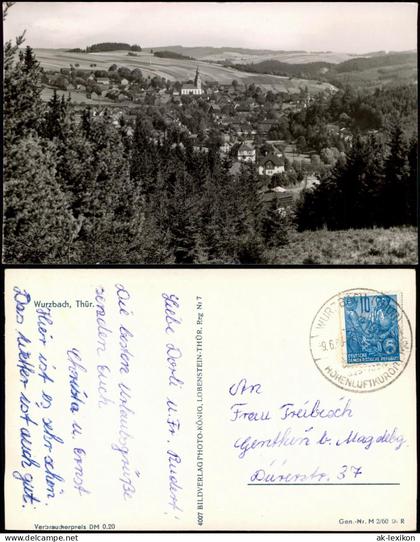 Wurzbach, Thür.
Liebe Dorli u. Fr. Rudert!
Die besten Urlaubsgrüße
senden Euch
Christa u. Ernst
Hier ist es sehr schön.
Das Wetter ist auch gut.
Verbraucherpreis DM 0,20
4027 BILDVERLAG PHOTO-KÖNIG, LOBENSTEIN-THÜR. Reg Nr 7
WURZBACH
9.6.
HÖHENLUFTKURORT
10
5
DEUTSCHE
DEMOKRATISCHE REPUBLIK
An
Frau Freibisch
Genthin b. Magdebg.
Dürerstr. 37
Gen.-Nr. M 2/60 R
© ak-lexikon.de